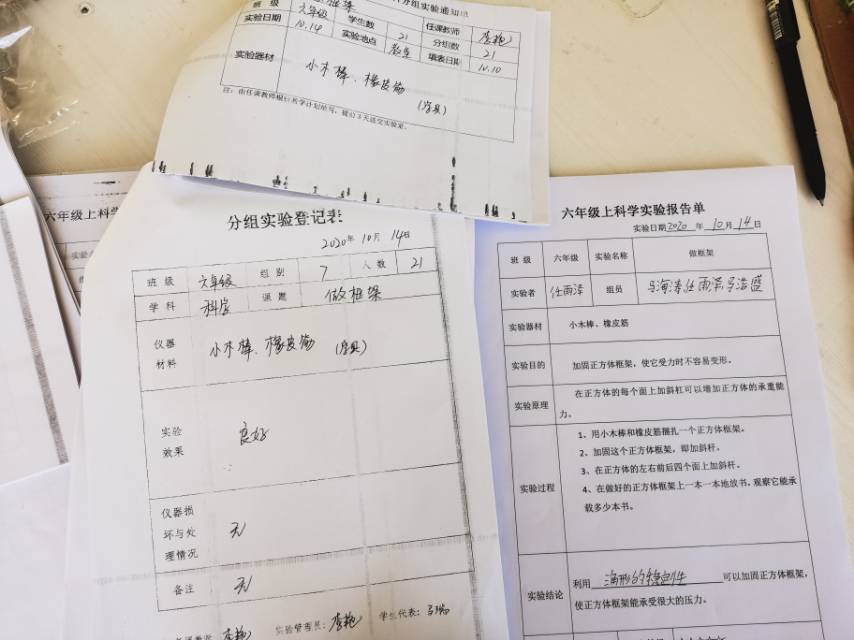 分组实验通知单
班 级 六年级 学生数 21 任课教师
实验日期 10.14 实验地点 教室 分组数 21
填表日期 10.10
实验器材 小木棒、橡皮筋 (学具)
注:由任课教师根据教学计划填写,提前3天送交实验室。
六年级上科学
分组实验登记表
2020年 10月 14日
班 级 六年级 组 别 7 人 数 21
学 科 科学 课 题 做框架
仪器
材料
小木棒、橡皮筋 (学具)
实验
效果
良好
仪器损
坏与处
理情况
无
备注 无
实验管理员: 学生代表:
六年级上科学实验报告单
实验日期2020 年 10 月 14 日
班 级 六年级 实验名称 做框架
实验者 任雨泽 组员
实验器材 小木棒、橡皮筋
实验目的 加固正方体框架,使它受力时不容易变形。
实验原理 在正方体的每个面上加斜杠可以增加正方体的承重能
力。
实验过程
1、用小木棒和橡皮筋捆扎一个正方体框架。
2、加固这个正方体框架,即加斜杆。
3、在正方体的左右前后四个面上加斜杆。
4、在做好的正方体框架上一本一本地放书,观察它能承
载多少本书。
实验结论 利用 角形的稳定性 可以加固正方体框架,
使正方体框架能承受很大的压力。